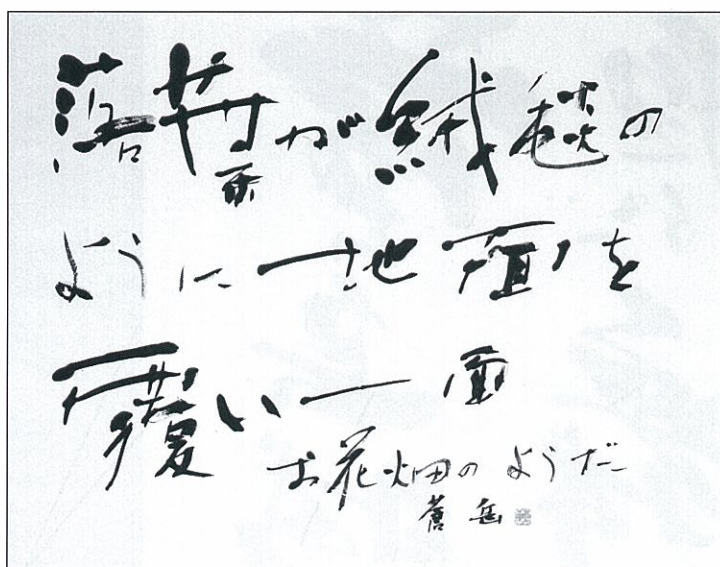 落葉が絨毯の
ように地面を
覆い一面
お花畑のようだ
蒼岳